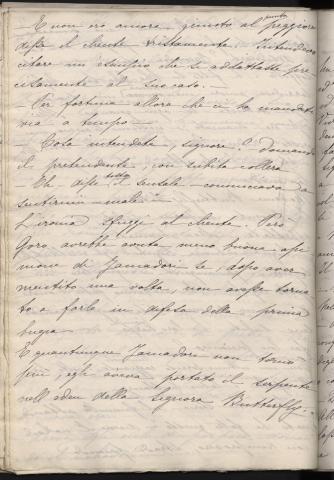 E non era ancora giunto al punto peggiore
disse il cliente tristamente. Intendevo
citare un esempio che si adattasse pre
cisamente al suo caso. —
— Per fortuna allora che ci ha mandato
via a tempo —
— Cosa intendete, signore? domandò
il pretendente con subita collera
— Eh disse tosto il sensale — cominciava a
sentirmi male!
L'ironia sfuggì al cliente. Però
Goro avrebbe avuta meno buona opi
nione di Yamadori se, dopo aver
mentito una volta, non avesse torna
to a farlo in difesa della prima
bugia
E quantunque Yamadori non tornò
più egli aveva portato il serpente
nell'eden della signora Butterfly. —